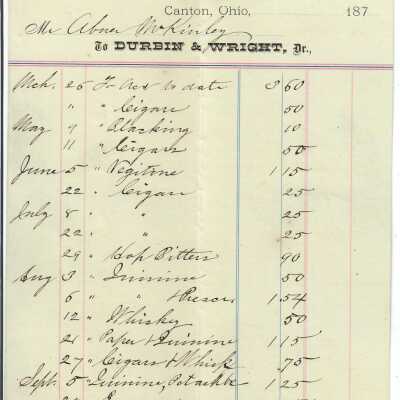 Canton, Ohio, 187
Mr Abner McKinley
To DURBIN & WRIGHT, Dr.,
Mch. 25 To Acct to date 3 60
" " Cigars 50
May 9 " Blacking 10
11 " Cigars 50
June 5 " Vegitine 1 15
22 " Cigars 25
July 8 " " 25
22 " " 25
29 " Hop Bitters 90
Aug 3 " Quinine 50
6 " " & Prescr. 1.54
12 " Whiskey 50
21 " Paper & Quinine 1 15
27 " Cigars & Whisk .75
Sept. 5 " Quinine, 1 25